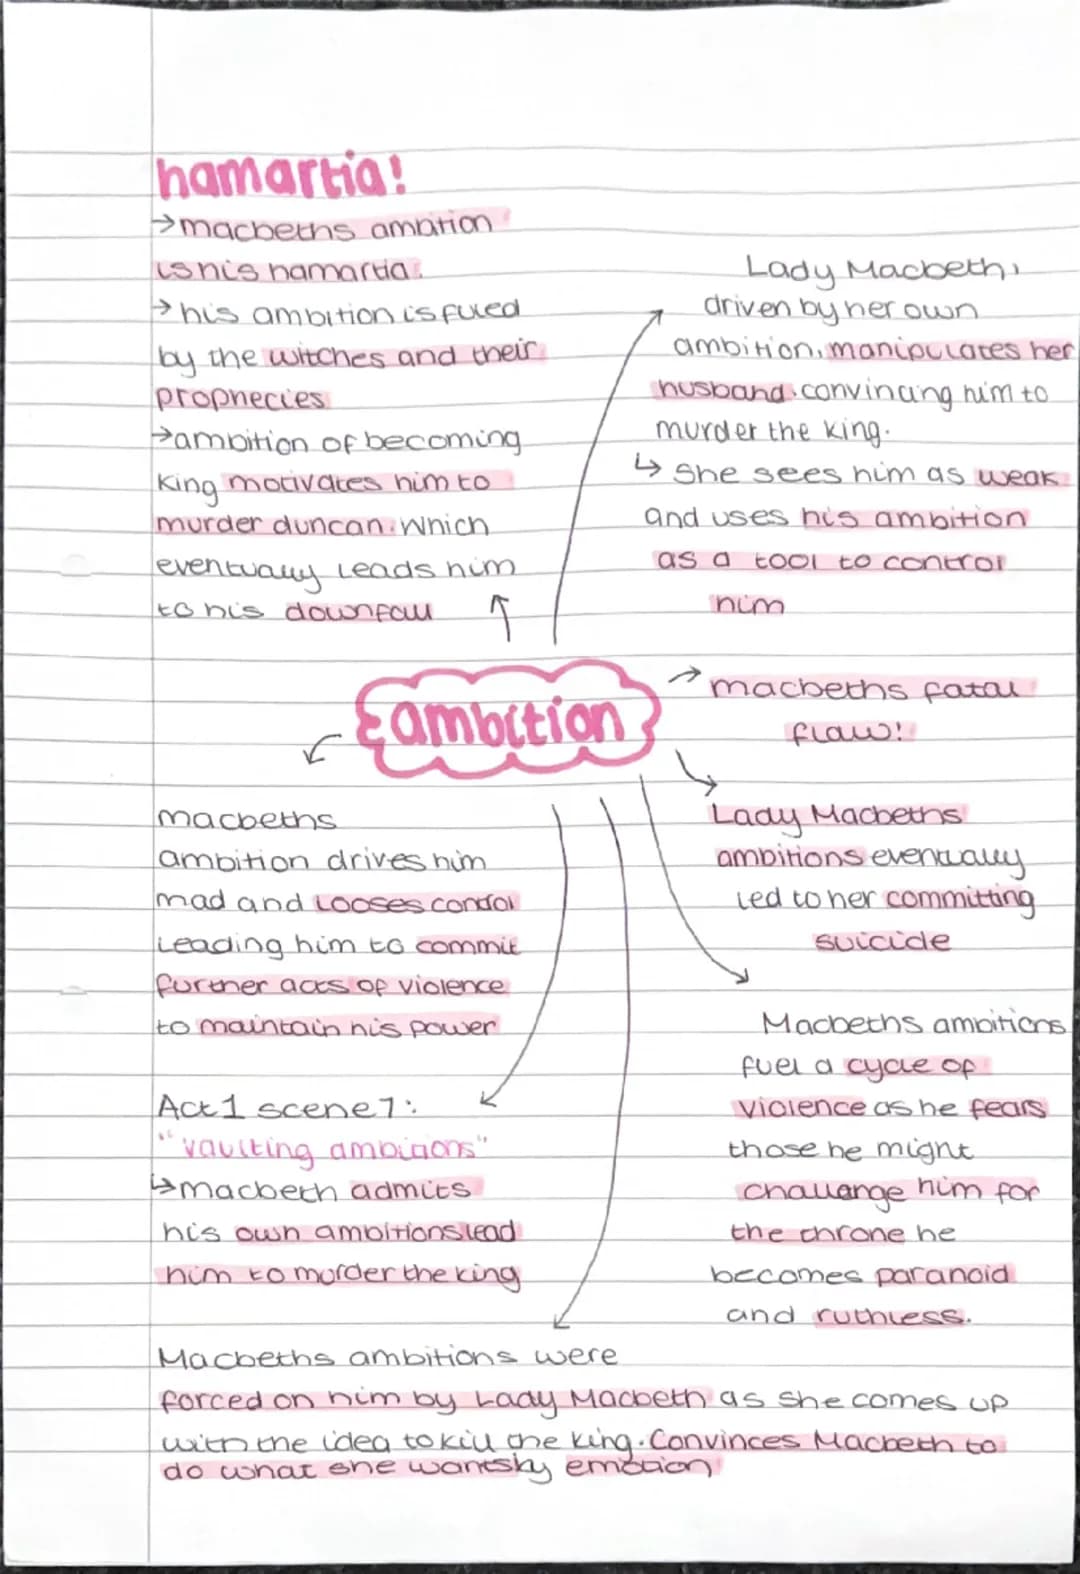 hamartia!
→macbeths ambition
is his hamartia.
→ his ambition is fuled
by the witches and their
prophecies
→ambition of becoming
King motivates him to
murder duncan. Which
eventually leads him
to his downfall
Lady Macbeth,
driven by her own
ambition, manipulates her
husband. convincing him to
murder the king.
↳ She sees him as weak
and uses his ambition
as a tool to control
him
ambition
macbeths fatal
flaw!
macbeths
ambition drives him
mad and looses control
Leading him to commit
further acts of violence
to maintain his power
Lady Macbeths
ambitions eventually
led to her committing
suicide
Macbeths ambitions
fuel a cycle of
violence as he fears
those he might
challange him for
the throne he
becomes paranoid
and ruthless.
Act 1 scene 7:
"vaulting ambitions"
↳macbeth admits
his own ambitions lead
him to murder the king
Macbeths ambitions were
forced on him by Lady Macbeth as she comes up
with the idea to kill the king. Convinces Macbeth to
do what she wants by emotion